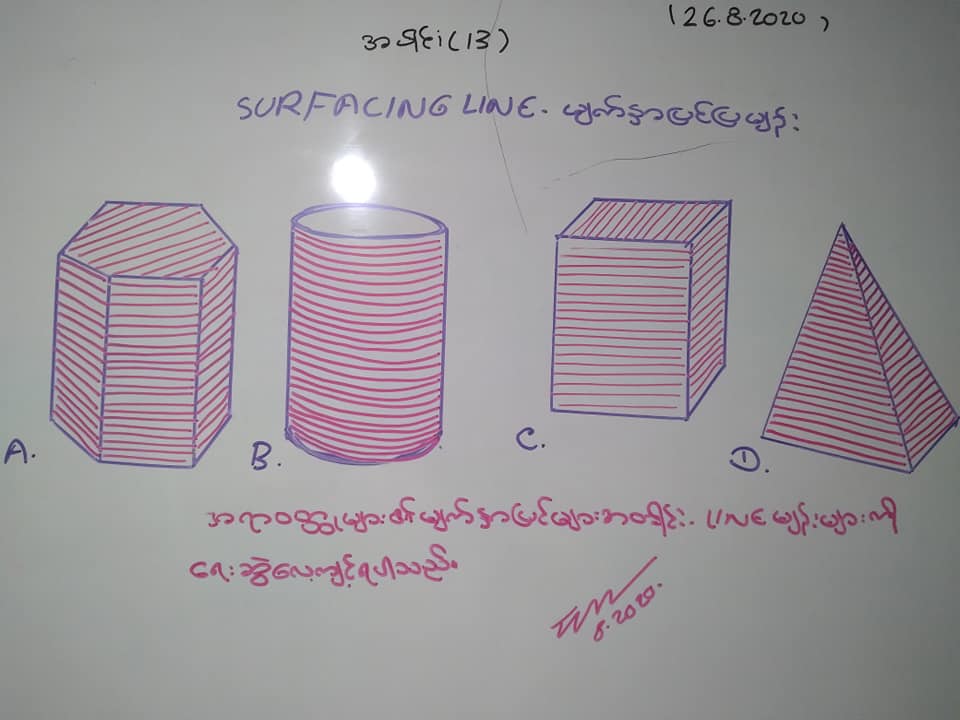 (26.8.2020)
အပိုင်း(13)
SURFACING LINE. မျက်နှာပြင်ပြမျဉ်း
A.
B.
C.
D.
အရာဝတ္ထုများ၏မျက်နှာပြင်များအတိုင်း. LINE မျဉ်းများကို
ရေးဆွဲလေ့ကျင့်ရပါသည်။
8.2020.